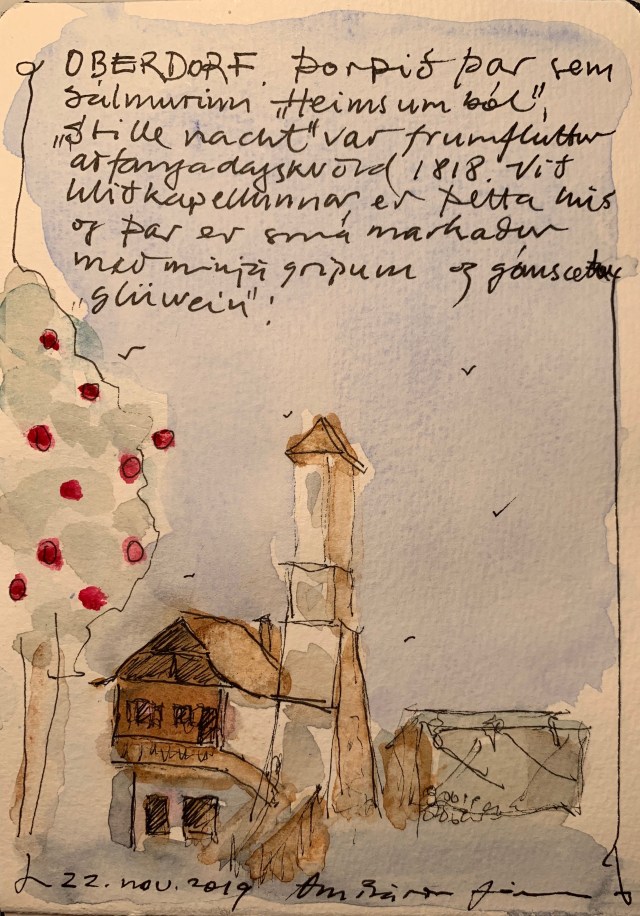 OBERDORF. Þorpið þar sem
sálmurinn „Heims um ból",
„Stille nacht" var frumfluttur
aðfangadagskvöld 1818. Við
hlið kapellunnar er þetta hús
og þar er smá markaður
með minjagripum og
„glüwein".
22. nov. 2019